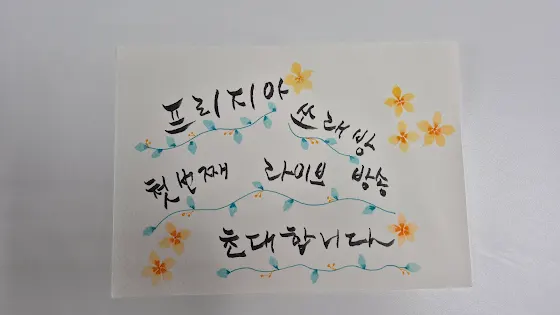 프리지아 쏘래방
첫번째 라이브 방송
초대합니다